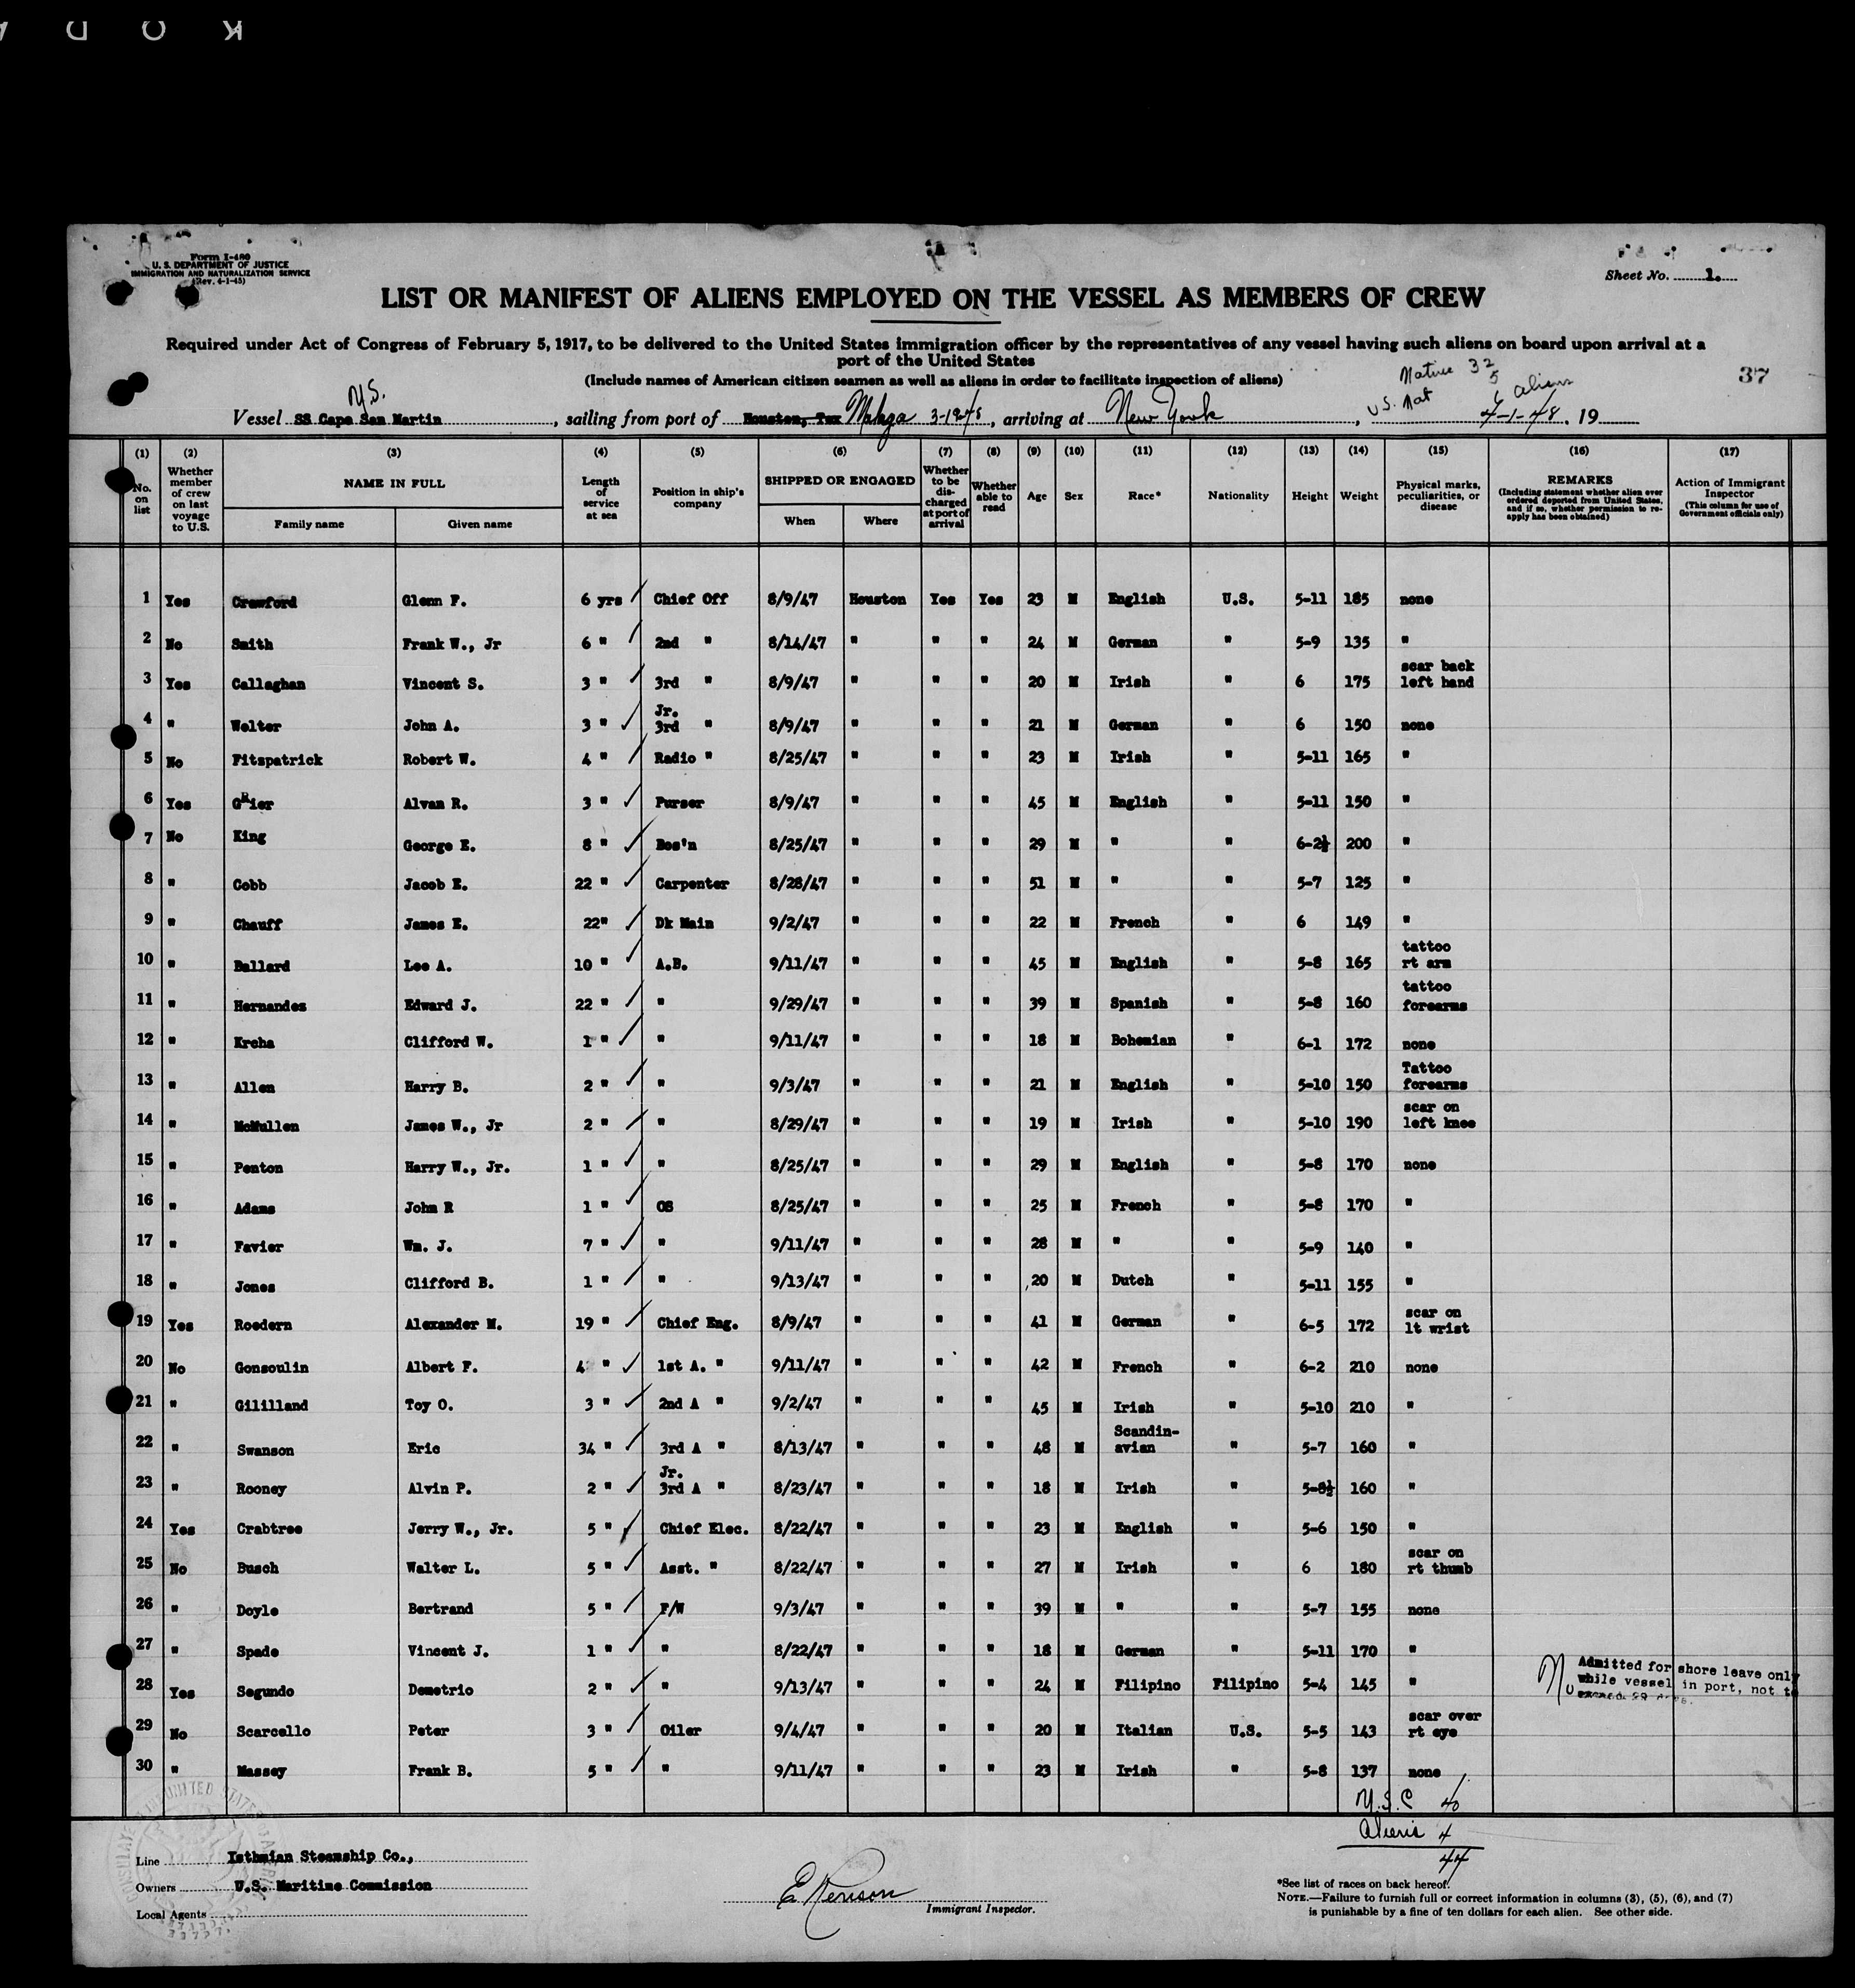 K O D A
Form I-480
U. S. DEPARTMENT OF JUSTICE
IMMIGRATION AND NATURALIZATION SERVICE
(Rev. 4-1-45)
Sheet No. 1.
LIST OR MANIFEST OF ALIENS EMPLOYED ON THE VESSEL AS MEMBERS OF CREW
Required under Act of Congress of February 5, 1917, to be delivered to the United States immigration officer by the representatives of any vessel having such aliens on board upon arrival at a
port of the United States
(Include names of American citizen seamen as well as aliens in order to facilitate inspection of aliens)
37
Native 32
5
U.S. Nat
aliens
M.S.
Vessel SS Cape San Martin, sailing from port of Houston, Tex 3-19-48, arriving at New York, 4-1-48, 19
(1) (2) (3) (4) (5) (6) (7) (8) (9) (10) (11) (12) (13) (14) (15) (16) (17)
No. on list Whether member of crew on last voyage to U.S. NAME IN FULL Family name Given name Length of service at sea Position in ship's company SHIPPED OR ENGAGED When Where Whether to be discharged at port of arrival Whether able to read Age Sex Race* Nationality Height Weight Physical marks, peculiarities, or disease REMARKS (Including statement whether alien ever ordered deported from United States, and if so, whether permission to reapply has been obtained) Action of Immigrant Inspector (This column for use of Government officials only)
1 Yes Crawford Glenn F. 6 yrs Chief Off 8/9/47 Houston Yes Yes 23 M English U.S. 5-11 185 none
2 No Smith Frank W., Jr 6 " 2nd " 8/14/47 " " " 24 M German " 5-9 135 "
3 Yes Callaghan Vincent S. 3 " 3rd " 8/9/47 " " " 20 M Irish " 6 175 scar back left hand
4 " Welter John A. 3 " Jr. 3rd " 8/9/47 " " " 21 M German " 6 150 none
5 No Fitzpatrick Robert W. 4 " Radio " 8/25/47 " " " 23 M Irish " 5-11 165 "
6 Yes GRier Alvan R. 3 " Purser 8/9/47 " " " 45 M English " 5-11 150 "
7 No King George E. 8 " Bos'n 8/25/47 " " " 29 M " " 6-2½ 200 "
8 " Cobb Jacob E. 22 " Carpenter 8/28/47 " " " 51 M " " 5-7 125 "
9 " Chauff James E. 22" Dk Main 9/2/47 " " " 22 M French " 6 149 "
10 " Ballard Lee A. 10 " A.B. 9/11/47 " " " 45 M English " 5-8 165 tattoo rt arm
11 " Hernandez Edward J. 22 " " 9/29/47 " " " 39 M Spanish " 5-8 160 tattoo forearms
12 " Krcha Clifford W. 1 " " 9/11/47 " " " 18 M Bohemian " 6-1 172 none
13 " Allen Harry B. 2 " " 9/3/47 " " " 21 M English " 5-10 150 Tattoo forearms
14 " McMullen James W., Jr 2 " " 8/29/47 " " " 19 M Irish " 5-10 190 scar on left knee
15 " Penton Harry W., Jr. 1 " " 8/25/47 " " " 29 M English " 5-8 170 none
16 " Adams John R 1 " OS 8/25/47 " " " 25 M French " 5-8 170 "
17 " Favier Wm. J. 7 " " 9/11/47 " " " 28 M " " 5-9 140 "
18 " Jones Clifford B. 1 " " 9/13/47 " " " 20 M Dutch " 5-11 155 "
19 Yes Roedern Alexander M. 19 " Chief Eng. 8/9/47 " " " 41 M German " 6-5 172 scar on lt wrist
20 No Gonsoulin Albert F. 4 " 1st A. " 9/11/47 " " " 42 M French " 6-2 210 none
21 " Gililland Toy O. 3 " 2nd A " 9/2/47 " " " 45 M Irish " 5-10 210 "
22 " Swanson Eric 34 " 3rd A " 8/13/47 " " " 48 M Scandin-avian " 5-7 160 "
23 " Rooney Alvin P. 2 " Jr. 3rd A " 8/23/47 " " " 18 M Irish " 5-8½ 160 "
24 Yes Crabtree Jerry W., Jr. 5 " Chief Elec. 8/22/47 " " " 23 M English " 5-6 150 "
25 No Busch Walter L. 5 " Asst. " 8/22/47 " " " 27 M Irish " 6 180 scar on rt thumb
26 " Doyle Bertrand 5 " F/W 9/3/47 " " " 39 M " " 5-7 155 none
27 " Spade Vincent J. 1 " " 8/22/47 " " " 18 M German " 5-11 170 "
28 Yes Segundo Demetrio 2 " " 9/13/47 " " " 24 M Filipino Filipino 5-4 145 " Admitted for shore leave only while vessel in port, not to
29 No Scarcello Peter 3 " Oiler 9/4/47 " " " 20 M Italian U.S. 5-5 143 scar over rt eye
30 " Massey Frank B. 5 " " 9/11/47 " " " 23 M Irish " 5-8 137 none
U.S.C 40
Aliens 4
44
Line Isthmian Steamship Co.,
Owners U.S. Maritime Commission
Local Agents
Immigrant Inspector.
*See list of races on back hereof.
NOTE.—Failure to furnish full or correct information in columns (3), (5), (6), and (7)
is punishable by a fine of ten dollars for each alien. See other side.